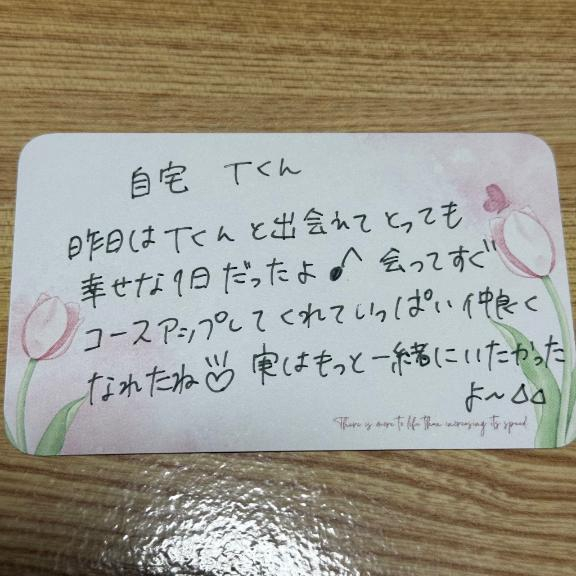 自宅 Tくん
昨日はTくんと出会れてとっても
幸せな1日だったよ♪ 会ってすぐ
コースアップしてくれていっぱい仲良く
なれたね♡ 実はもっと一緒にいたかった
よ〜△△
There is more to life than increasing its speed